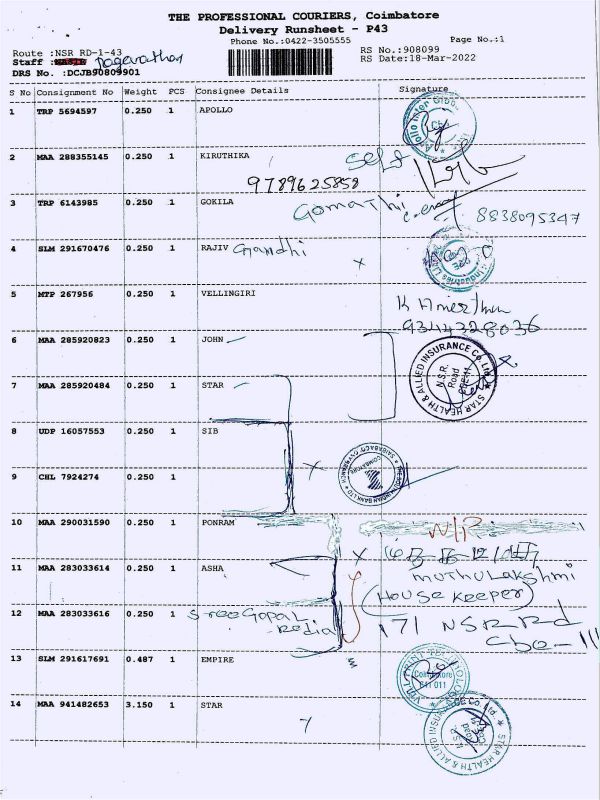 THE PROFESSIONAL COURIERS, Coimbatore
Delivery Runsheet - P43
Phone No.:0422-3505555
Page No.:1
Route :NSR RD-1-43
RS No.:908099
Staff :
RS Date:18-Mar-2022
DRS No. :DCJB90809901
S No Consignment No Weight PCS Consignee Details Signature
1 TRP 5694597 0.250 1 APOLLO
2 MAA 288355145 0.250 1 KIRUTHIKA Self
9789625858
3 TRP 6143985 0.250 1 GOKILA Gomathi 8838095347
4 SLM 291670476 0.250 1 RAJIV Gandhi x
5 MTP 267956 0.250 1 VELLINGIRI
9344328036
6 MAA 285920823 0.250 1 JOHN
STAR HEALTH & ALLIED INSURANCE Co. Ltd.
N.S.R. Road
7 MAA 285920484 0.250 1 STAR
8 UDP 16057553 0.250 1 SIB
9 CHL 7924274 0.250 1 x
10 MAA 290031590 0.250 1 PONRAM N/R
11 MAA 283033614 0.250 1 ASHA x
muthulakshmi
(House keeper)
12 MAA 283033616 0.250 1 Sree Gopal 171 NSR Rd
Cbe-11
13 SLM 291617691 0.487 1 EMPIRE
Coimbatore
641 011
14 MAA 941482653 3.150 1 STAR
STAR HEALTH & ALLIED INSURANCE Co. Ltd.